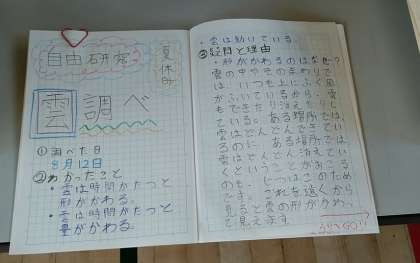 自由研究
夏休み
雲調べ
①調べた日
8月12日
②わかったこと
・雲は時間がたつと
形がかわる。
・雲は時間がたつと
量がかわる。
・雲は動いている。
③疑問と理由
・形がかわるのはなぜ?
雲の中やそのまわりで
は、いつも上によく風
がふいているから、雲
もできたり消えたりし
ている。ある場所では
雲はどんどんできてい
るのに、ある場所では
雲はどんどん消えてい
くということがおこる
のも、じつはこのため
です。これを遠くから
見ると雲の形がかわっ
て見えます。